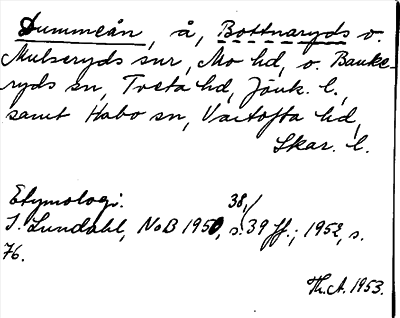 Dummeån, å, Bottnaryds o.
Mulseryds snr, Mo hd, o. Banke-
ryds sn, Tveta hd, Jönk. l.,
samt Habo sn, Vartofta hd,
Skar. l.
Etymologi:
38,/
I. Lundahl, NoB 1950, s. 39 ff.; 1952, s.
76.
Th.A. 1953.